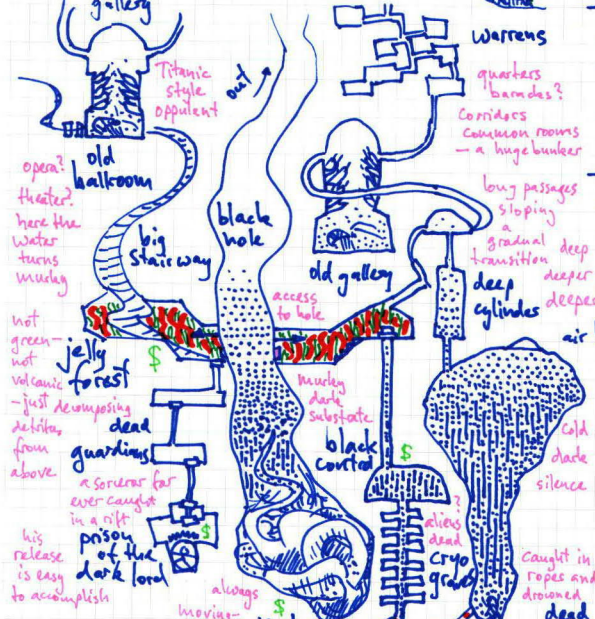 gallery
Titanic
style
oppulent
out
warrens
quarters
baracks?
Corridors
common rooms
- a huge bunker
old
ballroom
opera?
theater?
here the
water
turns
murky
big
Stairway
black
hole
old gallery
long passages
sloping
a
gradual
transition
deep
deeper
deeper
deep
cylinder
access
to hole
air
not
green-
not
volcanic
- just decomposing
detritus
from
above
jelly
forest
$
murky
dark
substrate
dead
guardians
black
$
cold
dark
silence
a sorceror for
ever caught
in a rift
prison
of the
dark lord
$
his
release
is easy
to accomplish
?
aliens
dead
cryo
graves
caught in
ropes and
drowned
dead
always
moving-
$